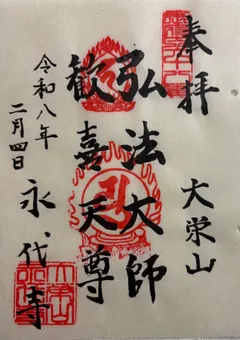 奉拝
大栄山
弘法大師
歓喜天尊
令和八年
二月四日
永代寺